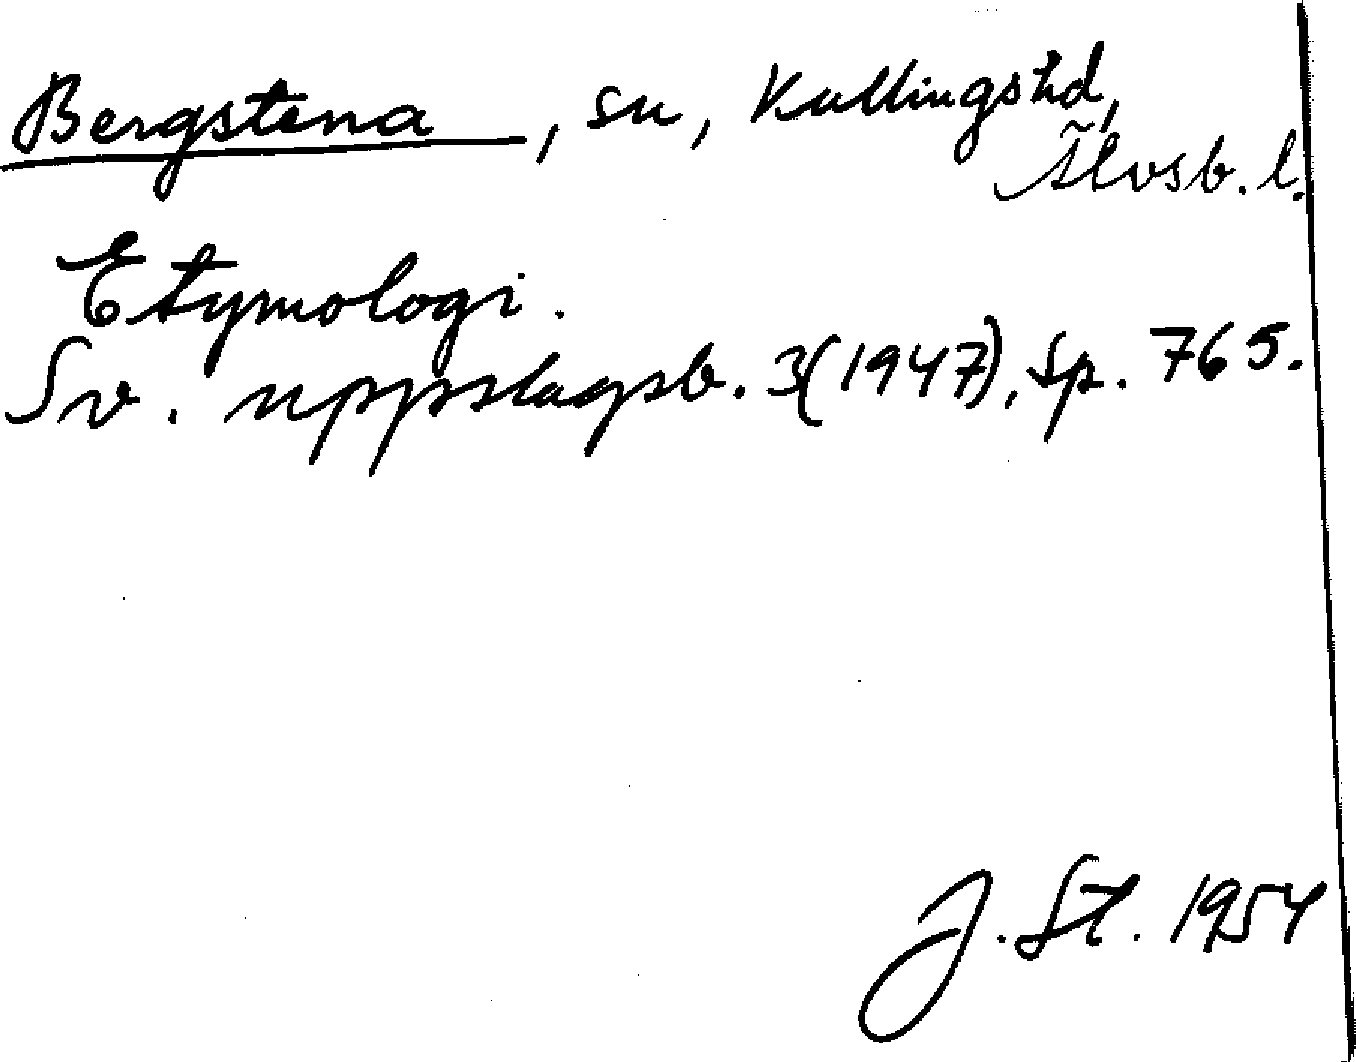 Bergstena, sn, Kullings hd,
Älvsb. l.
Etymologi.
Sv. uppslagsb. 3(1947), sp. 765.
J. St. 1954